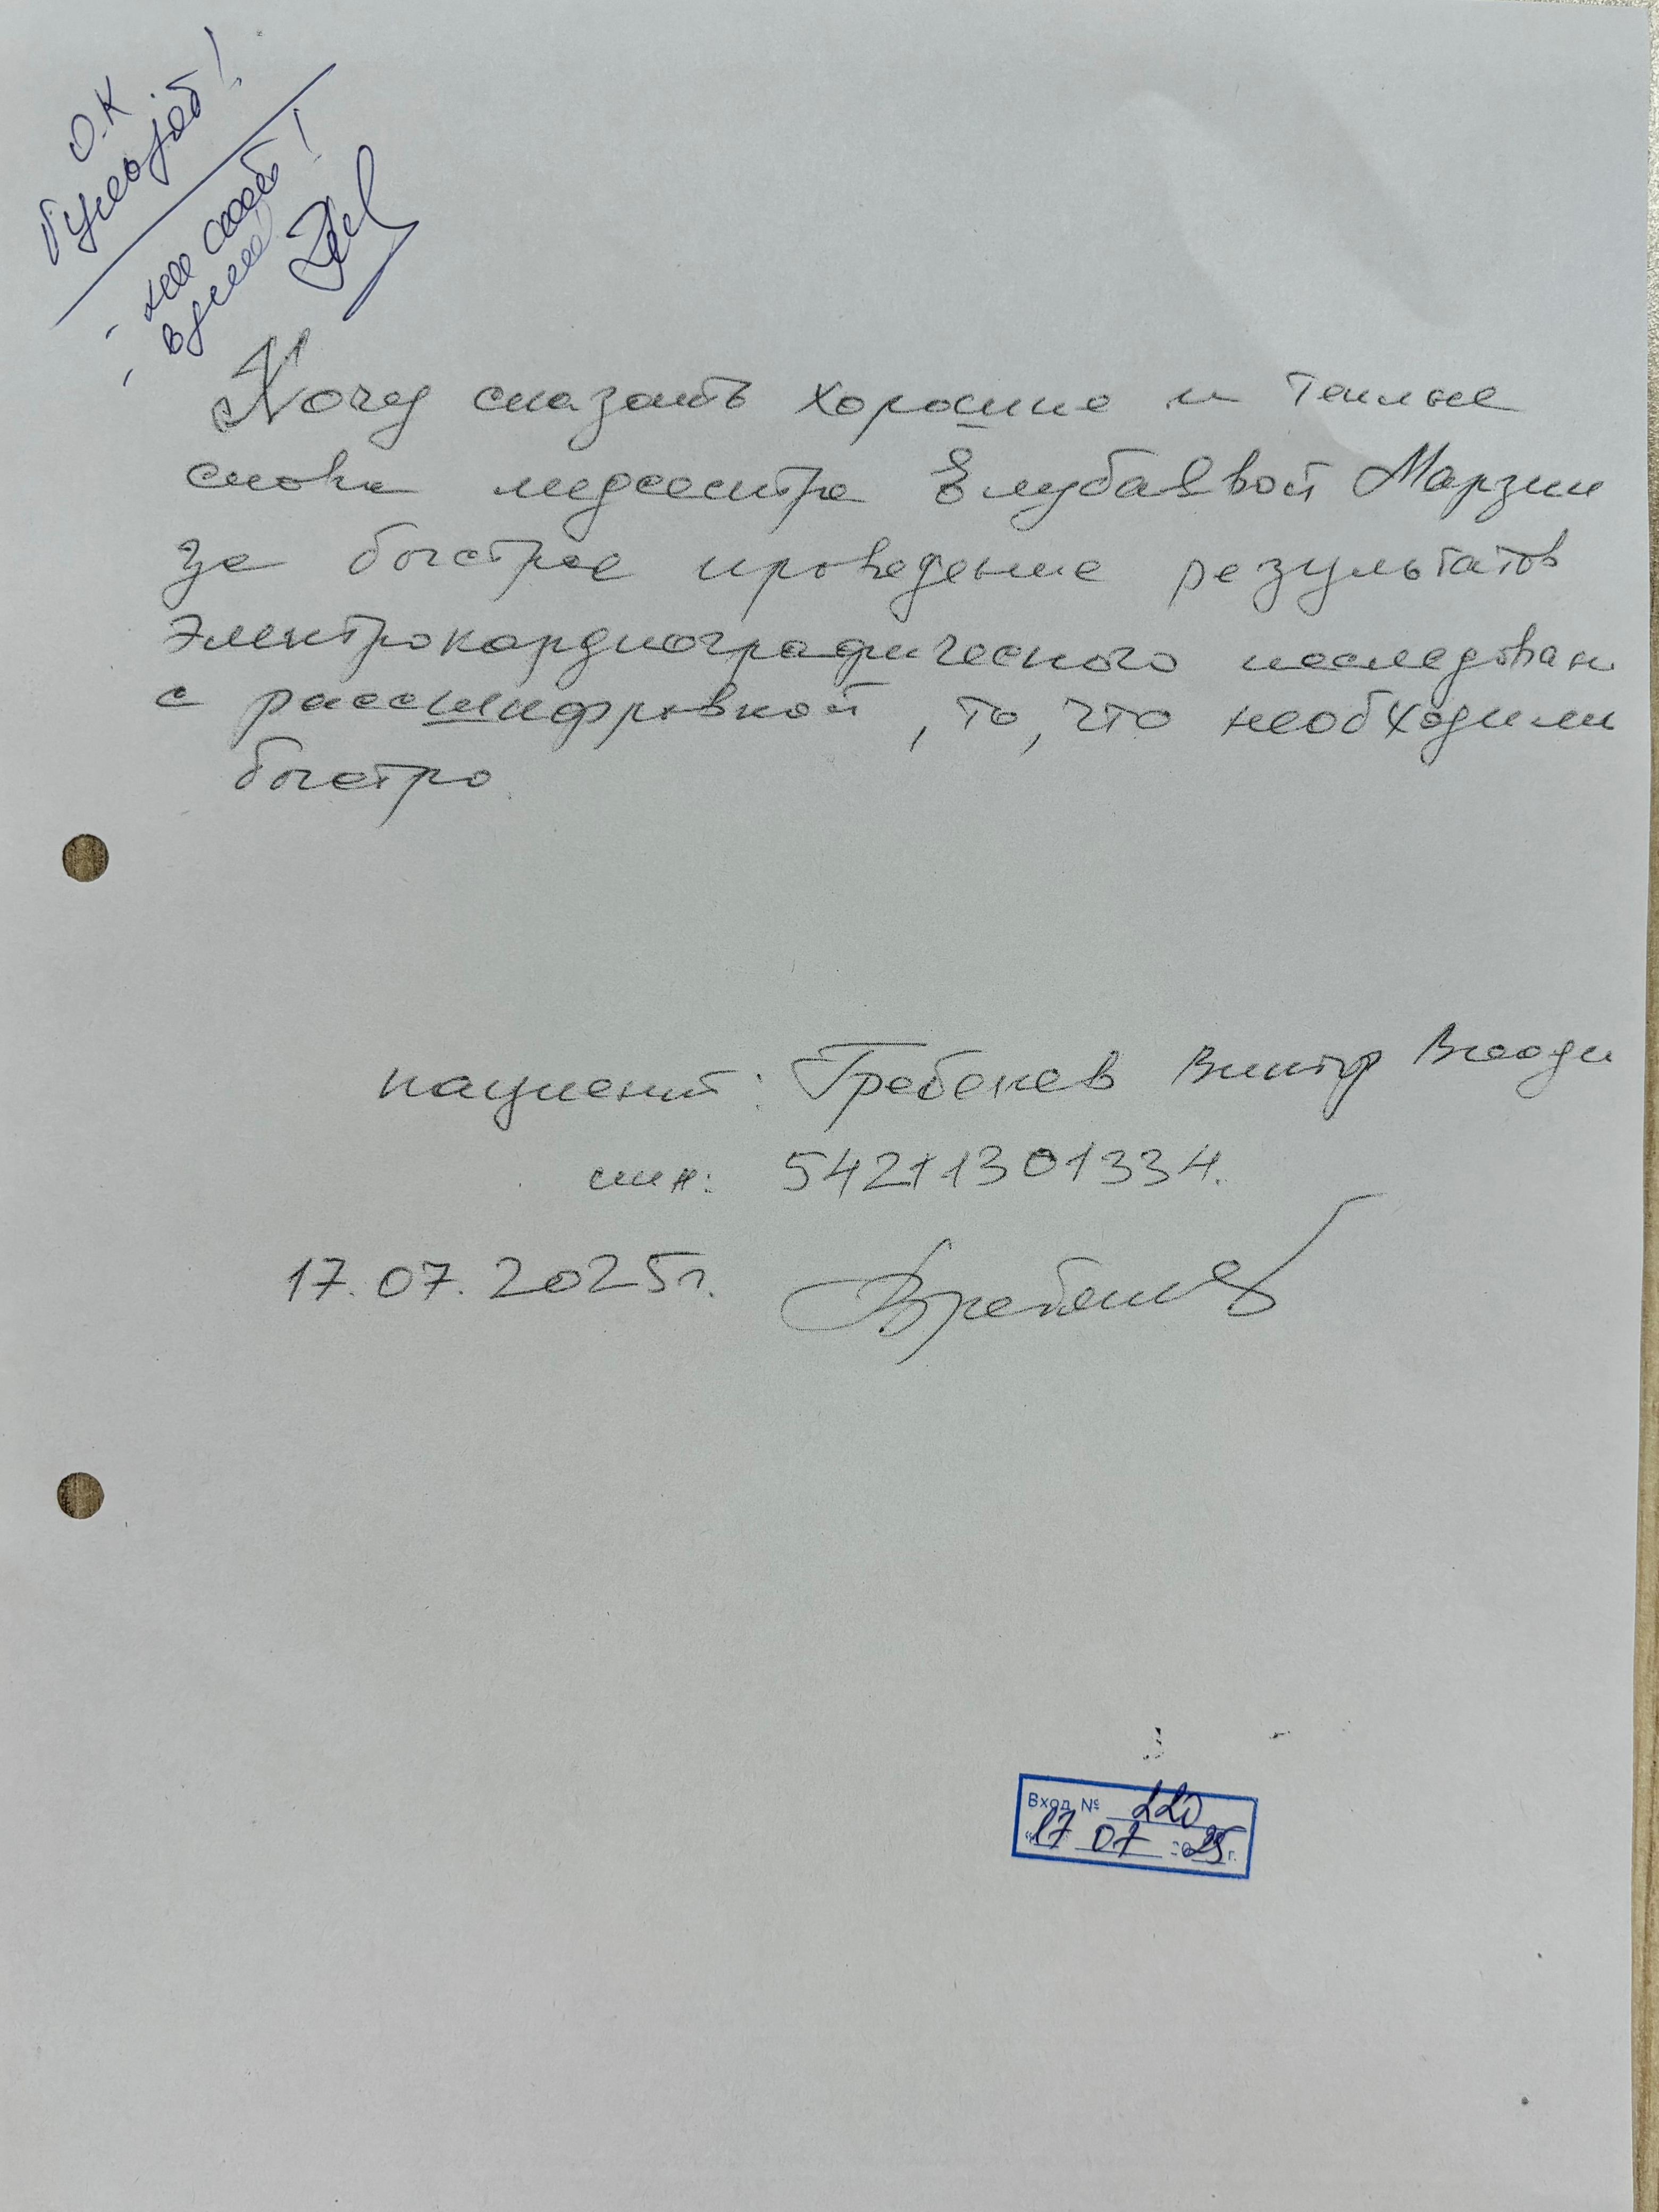 О.К
Хочу сказать хорошие и теплые
слова медсестре Елубаевой Марзии
за быстрое проведение результатов
электрокардиографического исследован
с рассшифровкой, то, что необходимы
быстро.
пациент: Гребенев Виктор Влади
иин: 54211301334.
17.07.2025г.
Вход № 220
"17" 07 2025 г.